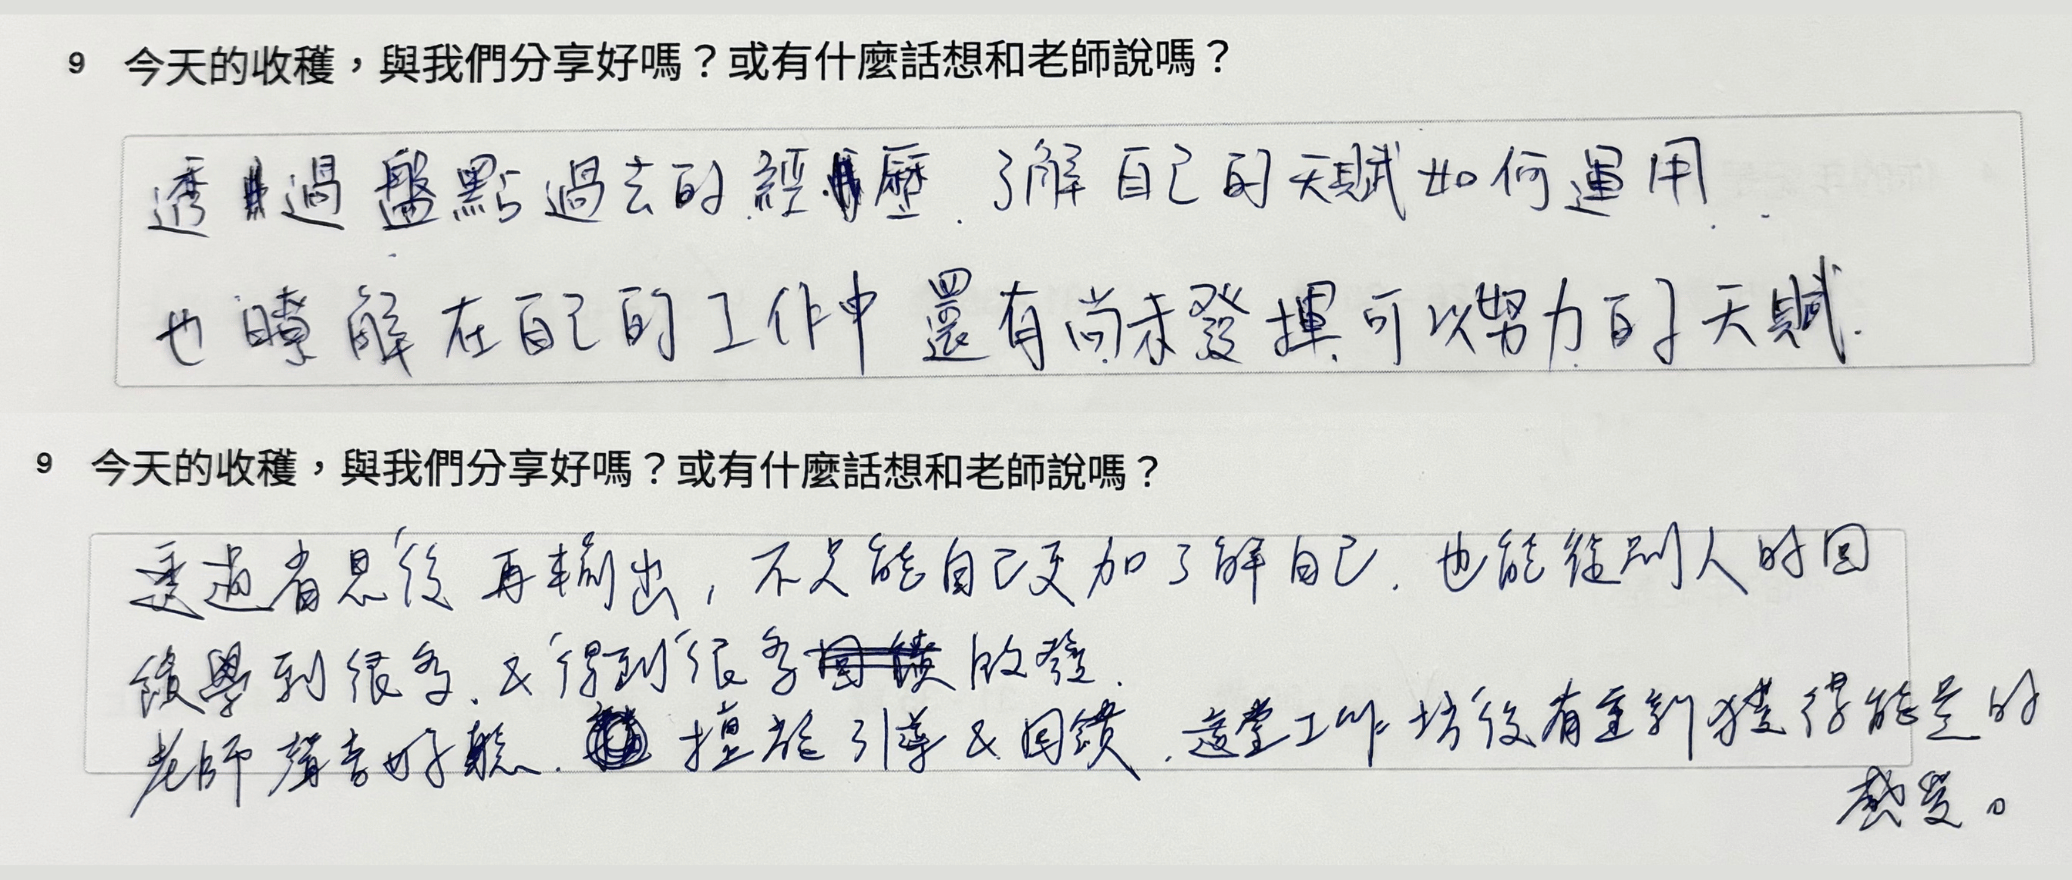 9 今天的收穫，與我們分享好嗎？或有什麼話想和老師說嗎？
透過盤點過去的經歷.了解自己的天賦如何運用.
也瞭解在自己的工作中還有尚未發揮可以努力的天賦.
9 今天的收穫，與我們分享好嗎？或有什麼話想和老師說嗎？
透過省思後再輸出，不只能自己更加了解自己.也能從別人的回
饋學到很多.&得到很多啟發.
老師聲音好聽.擅於引導&回饋.這堂工作坊後有重新獲得能量的
感受。